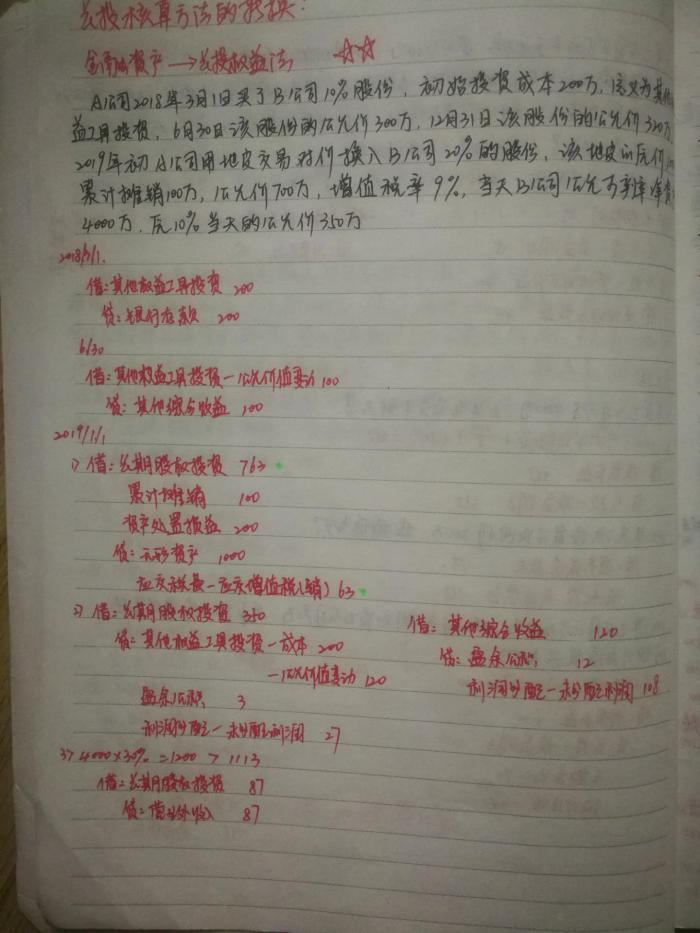 长投核算方法的转换:
金融资产→长投权益法 ☆☆
A公司2018年3月1日买了B公司10%股份,初始投资成本200万,定义为其他
益工具投资,6月30日该股份的公允价300万,12月31日该股份的公允价320万
2019年初A公司用地皮交易对价换入B公司20%的股份,该地皮的原价
累计摊销100万,公允价700万,增值税率9%,当天B公司公允可辨净资
4000万,原10%当天的公允价350万
2018/3/1.
借:其他权益工具投资 200
贷:银行存款 200
6/30
借:其他权益工具投资-公允价值变动 100
贷:其他综合收益 100
2019/1/1
1) 借:长期股权投资 763
累计摊销 100
资产处置损益 200
贷:无形资产 1000
应交税费-应交增值税(销) 63
2) 借:长期股权投资 350
贷:其他权益工具投资-成本 200
-公允价值变动 120
盈余公积 3
利润分配-未分配利润 27
借:其他综合收益 120
贷:盈余公积 12
利润分配-未分配利润 108
3) 4000×30%=1200>1113
借:长期股权投资 87
贷:营业外收入 87